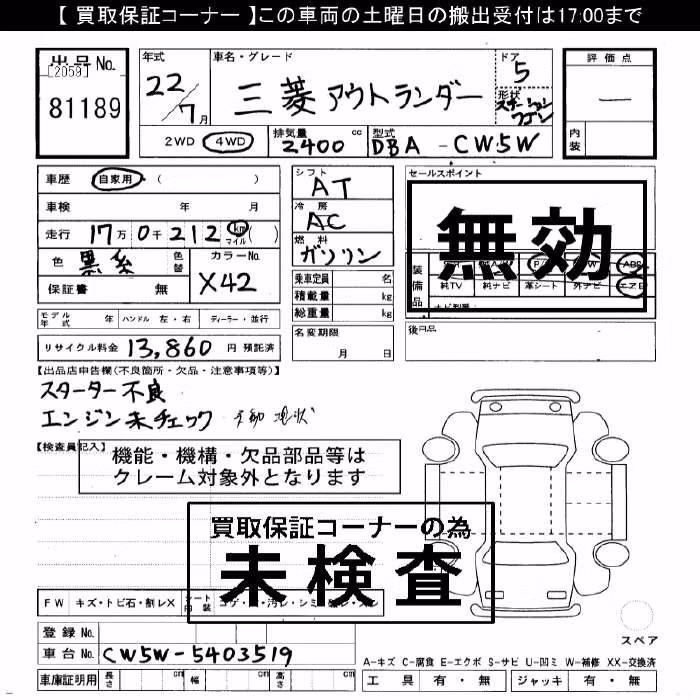 【 買取保証コーナー 】この車両の土曜日の搬出受付は17:00まで
出品 No.
[2059]
81189
年式
22/7月
車名・グレード
三菱 アウトランダー
ドア
5
形状
ステーションワゴン
評価点
―
内装
2WD 4WD
排気量
2400 cc
型式
DBA - CW5W
車歴 自家用 ( )
車検 年 月
走行 17万 0千 212 km マイル
色 黒系
色替
カラーNo.
X42
保証書 無
シフト
AT
冷房
AC
燃料
ガソリン
乗車定員 名
積載量 kg
総重量 kg
名変期限
月 日
セールスポイント
無効
装備品
ABS
純TV 純ナビ 革シート 外ナビ エアB
後日品
モデル年式 年 ハンドル 左・右 ディーラー・並行
リサイクル料金 13,860 円 預託済
【出品店申告欄(不良箇所・欠品・注意事項等)】
スターター不良
エンジン未チェック 不動 現状
【検査員記入】
機能・機構・欠品部品等は
クレーム対象外となります
買取保証コーナーの為
未検査
FW キズ・トビ石・割レX
シート内装
登録 No.
車台 No. CW5W-5403519
車庫証明用 長さ cm 幅 cm 高さ cm
スペア
A-キズ C-腐食 E-エクボ S-サビ U-凹ミ W-補修 XX-交換済
工具 有・無 ジャッキ 有・無